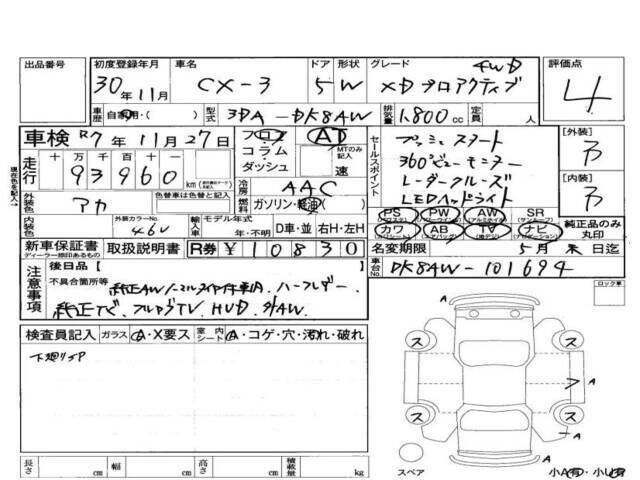 出品番号 初度登録年月 車名 ドア 形状 グレード 評価点
30年11月 CX-3 5 W 4WD XDプロアクティブ 4
車歴 自家用・( ) 型式 3DA-DK8AW 排気量 1.800cc 定員 人
車検 R7年11月27日 フロア AT セールスポイント プッシュスタート [外装]
走行 十万千百十一 コラム・ダッシュ MTのみ記入 速 360°ビューモニター
93960 km レーダークルーズ [内装]
現在色を記入→ 外装色 アカ 色替車は色替と記入 冷房 AAC 燃料 ガソリン・軽油( ) LEDヘッドライト
内装色 外装カラーNo. 46V 輸入車 モデル年式 年・不明 D車・並 右H・左H
PS PW AW SR
カワ AB TV ナビ 純正品のみ丸印
新車保証書 ディーラー捺印あるもの 取扱説明書 R券 ¥10830 名変期限 5月末日迄
注意事項 後日品【 】 車台No. DK8AW-101694
不具合箇所等
純正ナビ フルセグTV HUD 外AW ロック車
検査員記入 ガラス A・X要ス 室内シート A・コゲ・穴・汚れ・破れ
下廻りSP
ス ス
A
A
ス ス
A
スペア A
長さ cm 幅 cm 高さ cm 積載量 kg 小A有・小U有